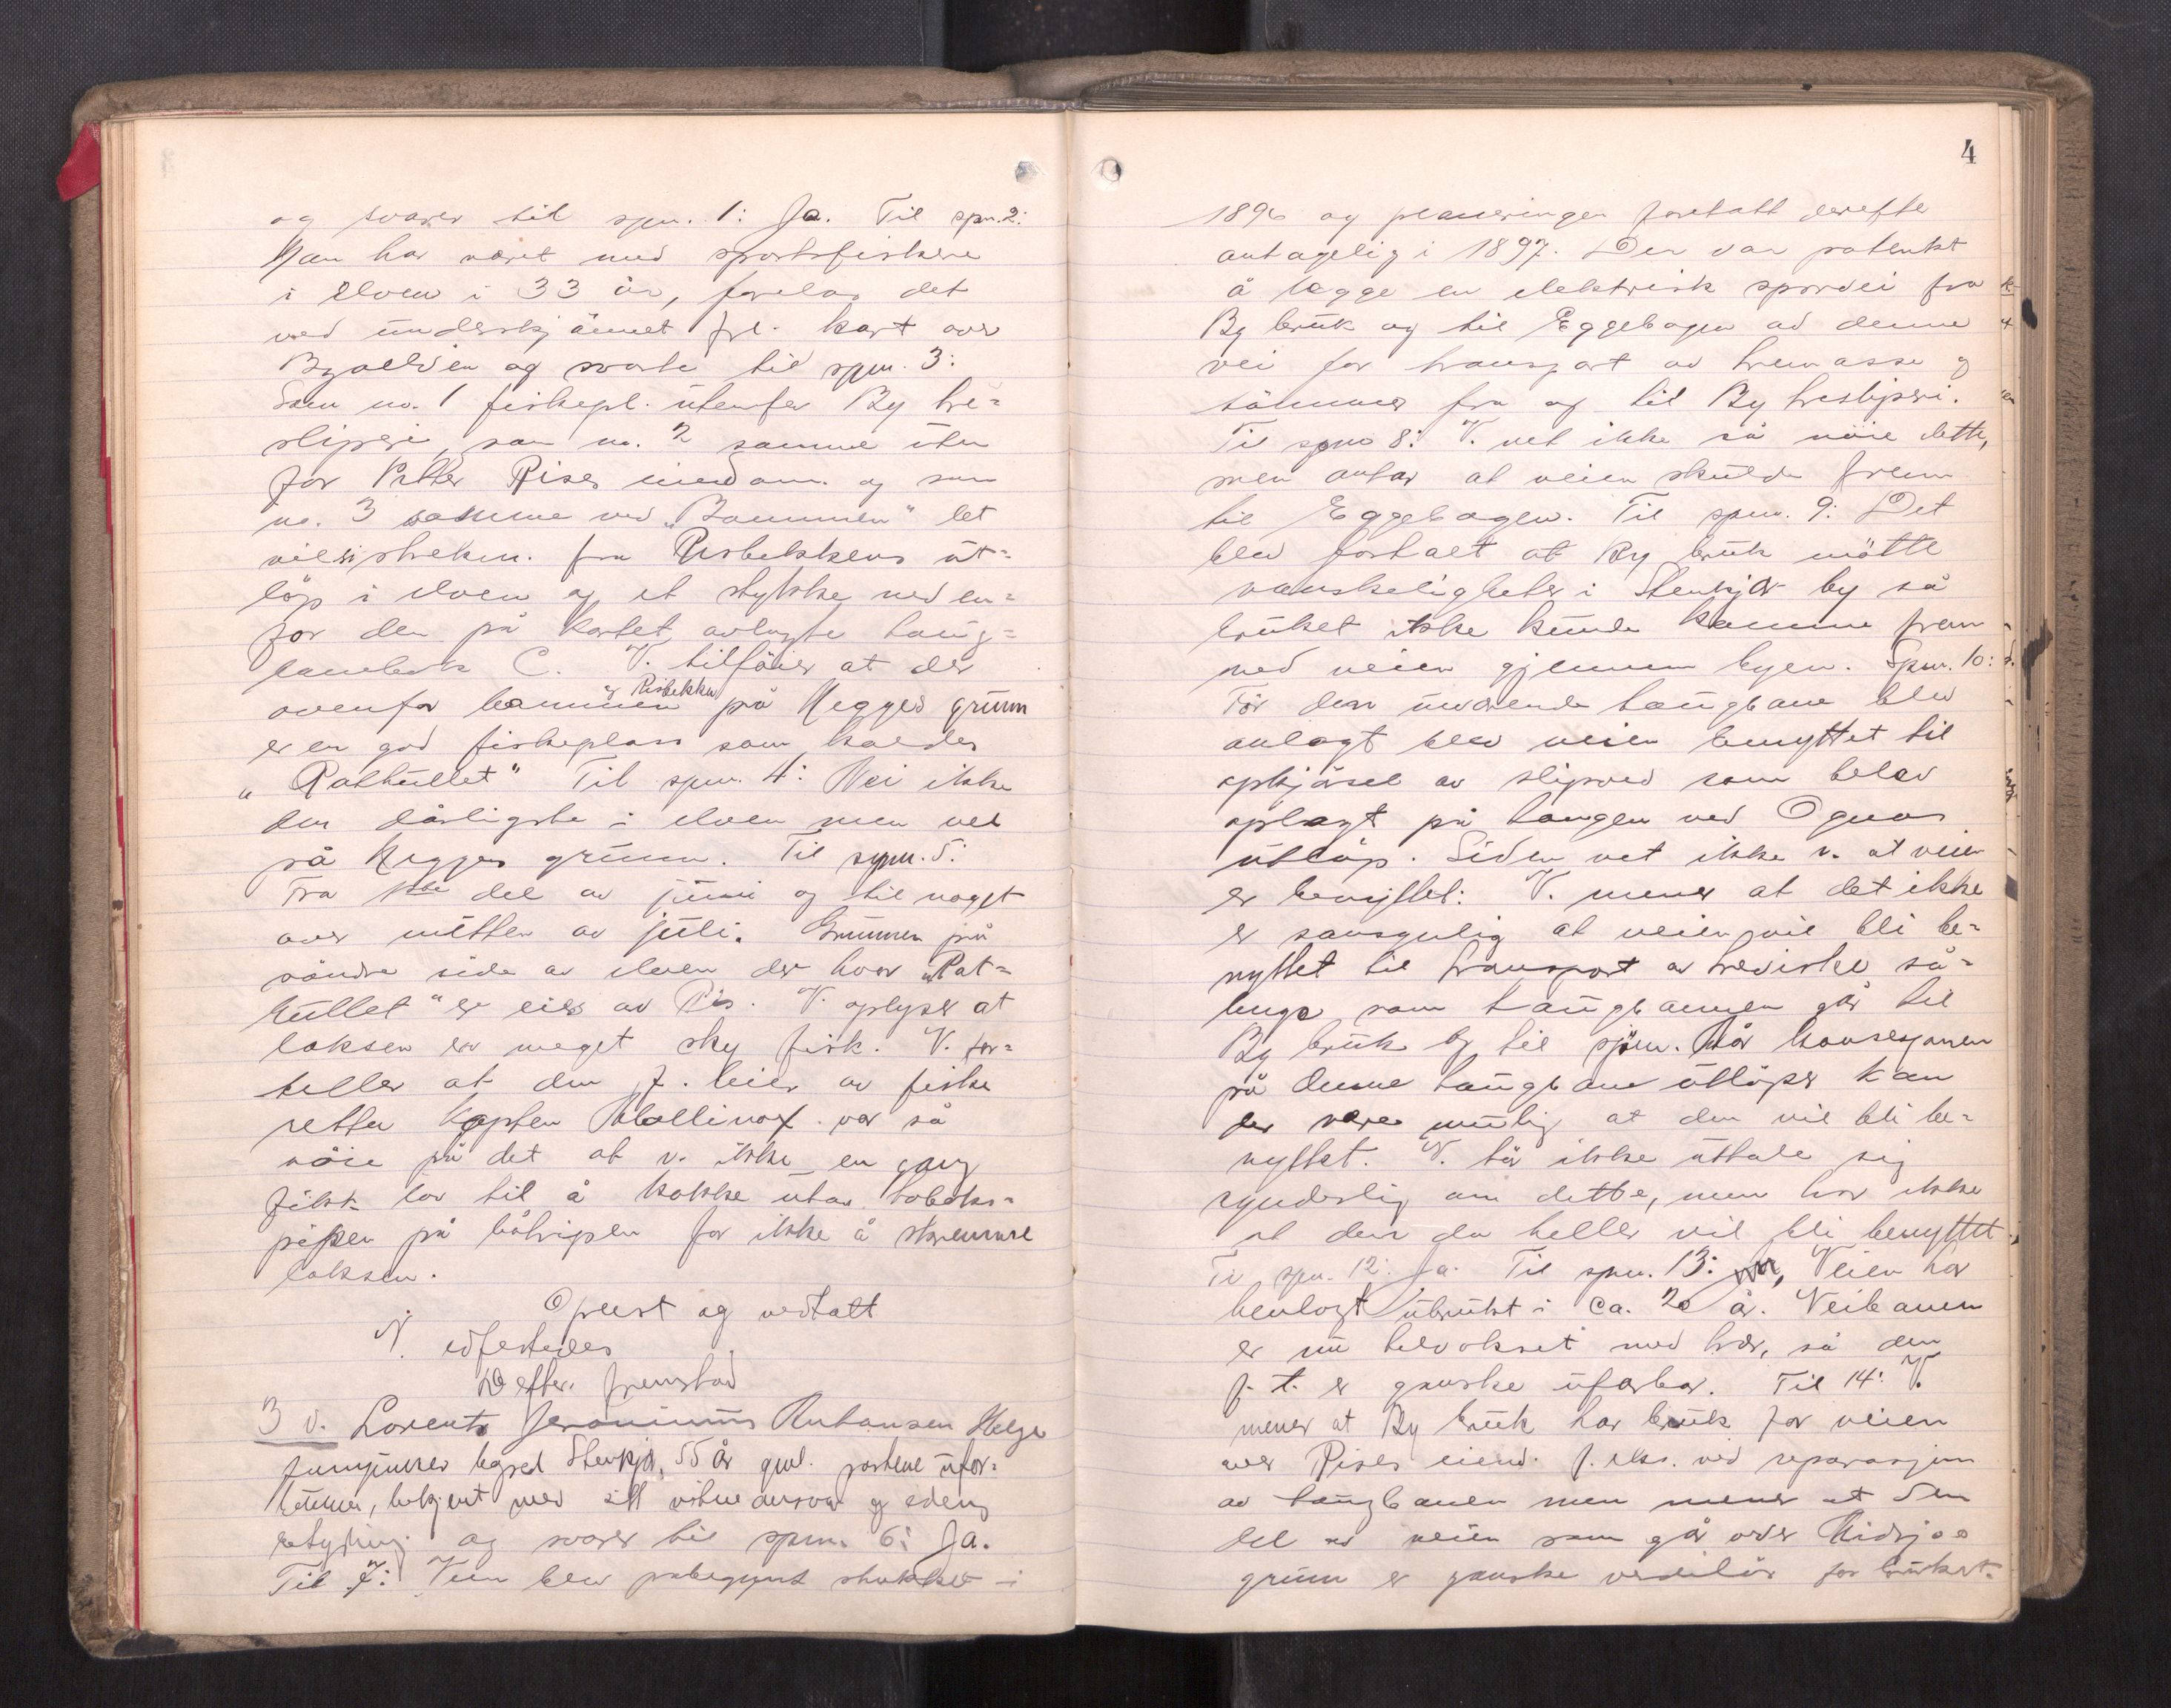 og svarer til spm. 1: Ja. Til spm. 2:
Han har været med sportsfiskere
i elven i 33 år, forelas det
ved underskjönnet frl. kart over
Byaelven og svarte til spm. 3:
Som no. 1 fiskepl. utenfor By tre-
sliperi, som no. 2 samme uten
for Petter Rises eiendom og som
no. 3 samme ved "Bommen" let
vil si streken. fra Risbekkens ut-
löp i elven og et stykke neden-
for den på kartet avlagte taug-
banebukk C. V. tilföier at der
ovenfor bommen og Risbekken på Hegges grunn
er en god fiskeplass som kaldes
"Rathullet" Til spm. 4: Nei ikke
den dårligste i elven men vel
på Hegges grunn. Til spm. 5:
Fra siste del av juni og til noget
over mitten av juli. Grunnen på
söndre side av elven der hvor "Rat-
hullet" er eies av Ris. V. oplyser at
laksen er meget sky fisk. V. for-
teller at den f. leier av fiske
retten kaptein var så
nöie på det at v. ikke en gang
fikk lov til å kakke utav tobaks-
pipen på båtripen for ikke å skremme
laksen.
Oplest og vedtatt
V. edfestedes
Derefter fremstod
3 v. Lorents Jeronimus Antonsen Helge
bopæl Stenkjer, 55 år gml. partene ufor-
bunden, bekjent med sitt vitneansvar og edens
betydning og svarer til spm. 6: Ja.
Til 7: Veien blev påbegynt stukket i
4
1896 og planeringen foretatt derefter
antagelig i 1897. Der var påtenkt
å legge en elektrisk sporvei fra
By bruk og til Eggebogen ad denne
vei for transport av tremasse og
tömmer fra og til By tresliperi.
Til spm 8: V. vet ikke så nöie dette,
men antar at veien skulde frem
til Eggebogen. Til spm. 9: Det
blev fortalt at By bruk mötte
vanskeligheter i Stenkjer by så
bruket ikke kunde komme frem
med veien gjennem byen. Spm. 10:
För den nuværende taugbane blev
anlagt blev veien benyttet til
opkjörsel av slipved som blev
oplagt på tangen ved Ognas
utlöp. Siden vet ikke v. at veien
er benyttet. V. mener at det ikke
er sansynlig at veien vil bli be-
nyttet til transport av trevirke så-
lenge som taugbanen går til
By bruk og til sjöen. Når konsesjonen
på denne taugbane utlöper kan
det være mulig at den vil bli be-
nyttet. V. tör ikke uttale sig
synderlig om dette, men tror ikke
at den da heller vil bli benyttet.
Til spm. 12: Ja. Til spm. 13: Veien har
henlagt ubrukt i ca. 20 år. Veibanen
er nu tilvokset med trær, så den
f. t. er ganske ufarbar. Til 14: V.
mener at By bruk har bruk for veien
over Rises eiend. f. eks. ved reparasjon
av taugbanen men mener at den
del av veien som går over
grunn er ganske verdilös for bruket.